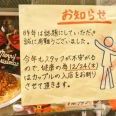 お知らせ
昨年は話題にして いただき
誠に有難うございました。
今年もスタッフが不安がる
ので、健康の為 12/24(木)
はカップルの入店をお断り
させて頂きます。
Happy